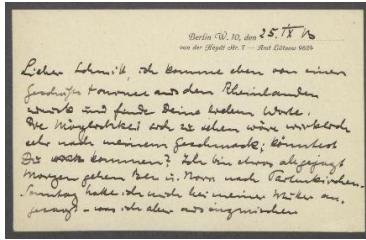 Berlin W. 10, den 25. IX
von der Heydt Str. 7 — Amt Lützow 9624
Lieber Schmitt, ich komme eben von einer
Geschäfts tournee aus den Rheinlanden
zurück und finde Deine lieben Worte.
Die Möglichkeit Dich zu sehen wäre wirklich
sehr nach meinem Geschmack; könntest
Du nicht kommen? Ich bin etwas abgejagt
Morgen gehen Ben u. Nora nach Partenkirchen.
Sonntag habe ich mich bei meiner Mutter an-
gesagt - was ich aber aus inzwischen